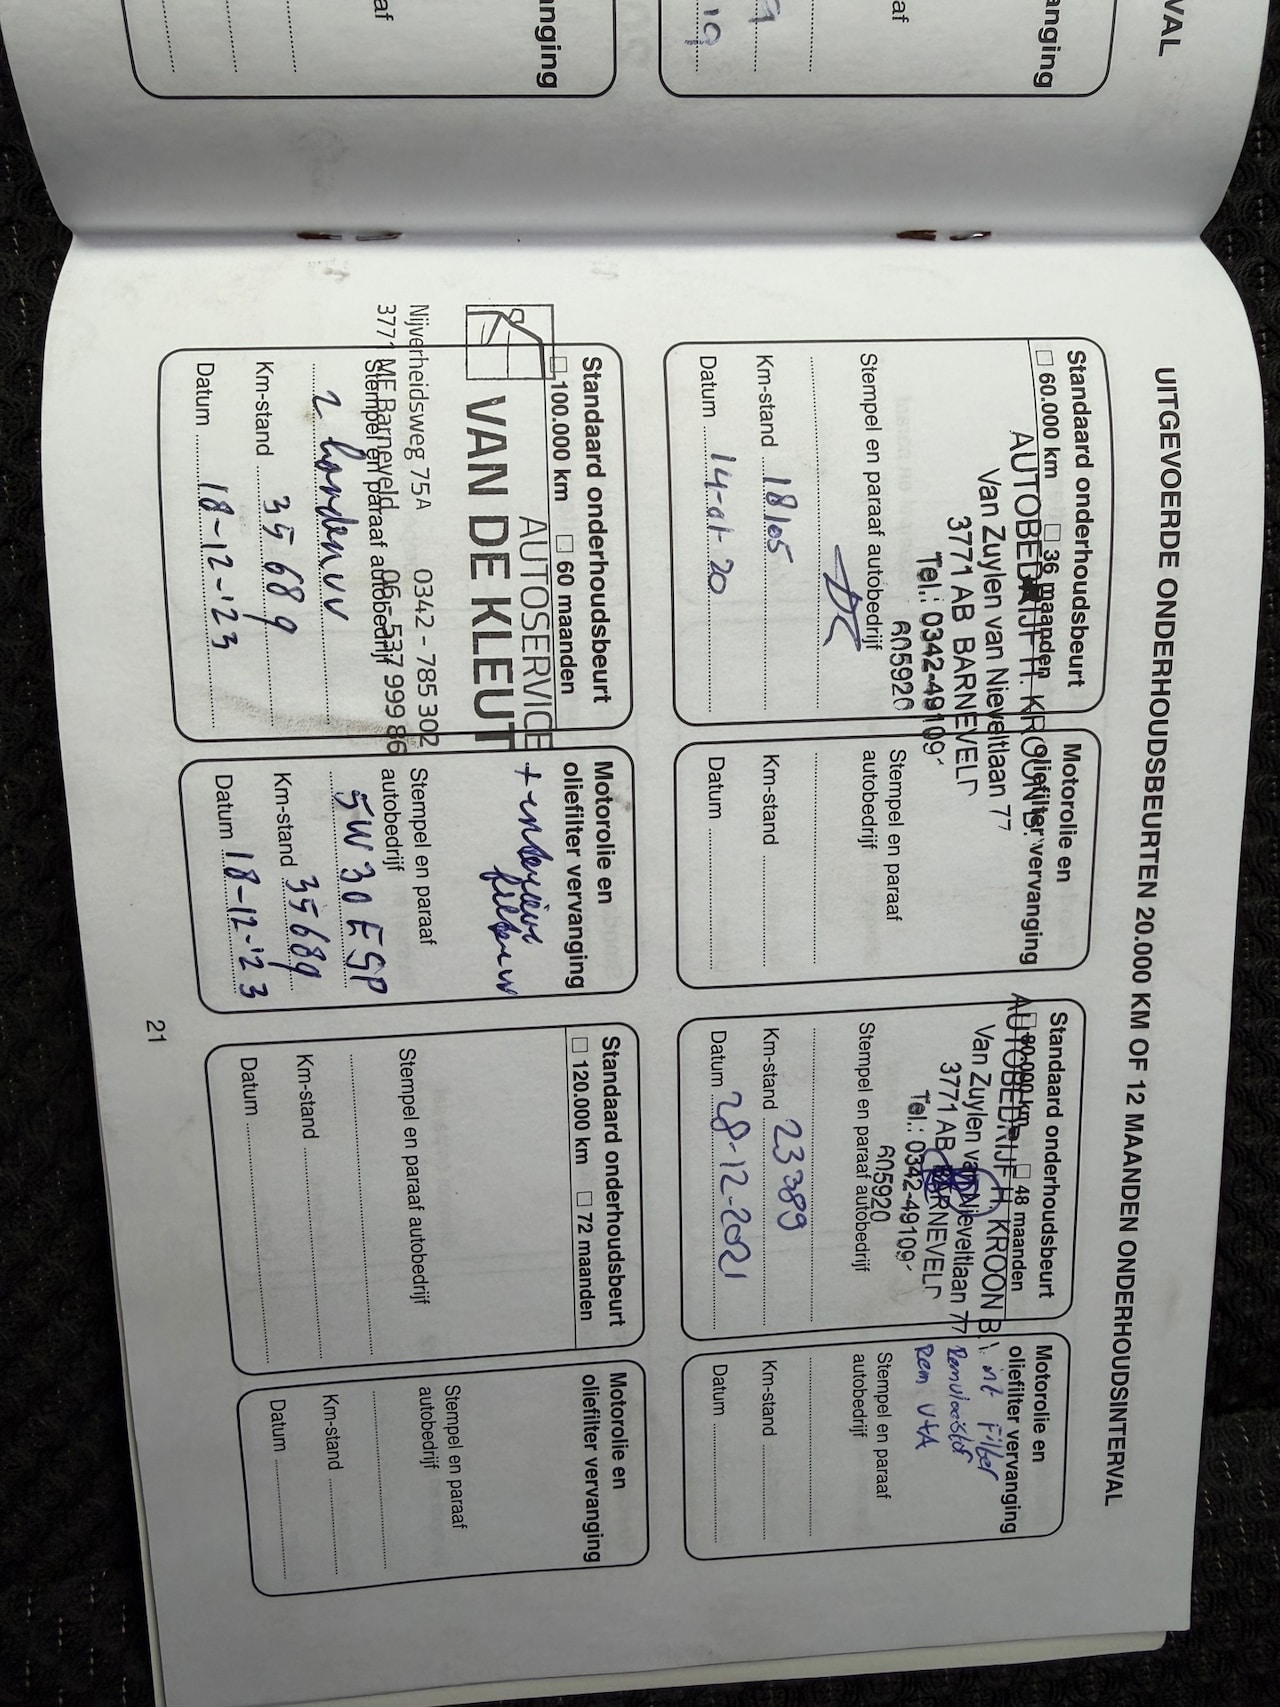 VAL
anging
af
19
anging
af
UITGEVOERDE ONDERHOUDSBEURTEN 20.000 KM OF 12 MAANDEN ONDERHOUDSINTERVAL
Standaard onderhoudsbeurt
☐ 60.000 km ☐ 36 maanden
AUTOBEDRIJF H. KROON B.
Van Zuylen van Nieveltlaan 77
3771 AB BARNEVELD
Tel.: 0342-49109
605920
Stempel en paraaf autobedrijf
Km-stand 18105
Datum 14-01-20
Motorolie en
oliefilter vervanging
Stempel en paraaf
autobedrijf
Km-stand
Datum
Standaard onderhoudsbeurt
☐ 80.000 km ☐ 48 maanden
AUTOBEDRIJF H. KROON B.V.
Van Zuylen van Nieveltlaan 77
3771 AB BARNEVELD
Tel.: 0342-49109
605920
Stempel en paraaf autobedrijf
Km-stand 23389
Datum 28-12-2021
Motorolie en
oliefilter vervanging
int Filter
Remvloeistof
Rem V+A
Stempel en paraaf
autobedrijf
Km-stand
Datum
Standaard onderhoudsbeurt
☐ 100.000 km ☐ 60 maanden
AUTOSERVICE
VAN DE KLEUT
Nijverheidsweg 75A 0342 - 785 302
3771 ME Barneveld 06 - 537 999 86
Stempel en paraaf autobedrijf
2 banden vv
Km-stand 35689
Datum 18-12-'23
Motorolie en
oliefilter vervanging
+ interieur
filter vv
Stempel en paraaf
autobedrijf
5W30 ESP
Km-stand 35689
Datum 18-12-'23
Standaard onderhoudsbeurt
☐ 120.000 km ☐ 72 maanden
Stempel en paraaf autobedrijf
Km-stand
Datum
Motorolie en
oliefilter vervanging
Stempel en paraaf
autobedrijf
Km-stand
Datum
21